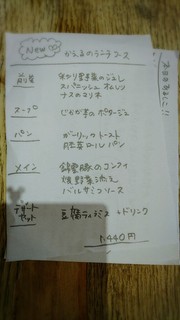 NEW かえるのランチコース
前菜 彩り野菜のジュレ
スパニッシュオムレツ
ナスのマリネ
スープ じゃが芋のポタージュ
パン ガーリックトースト
胚芽ロールパン
メイン 錦雲豚のコンフィ
焼野菜添え
バルサミコソース
デザートセット 豆腐ティラミス +ドリンク
1,440円